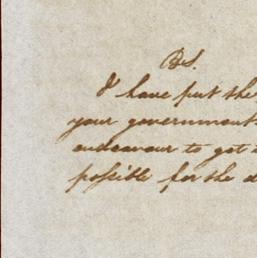 P.S.
I have put the
your government
endeavour to get
possible for the